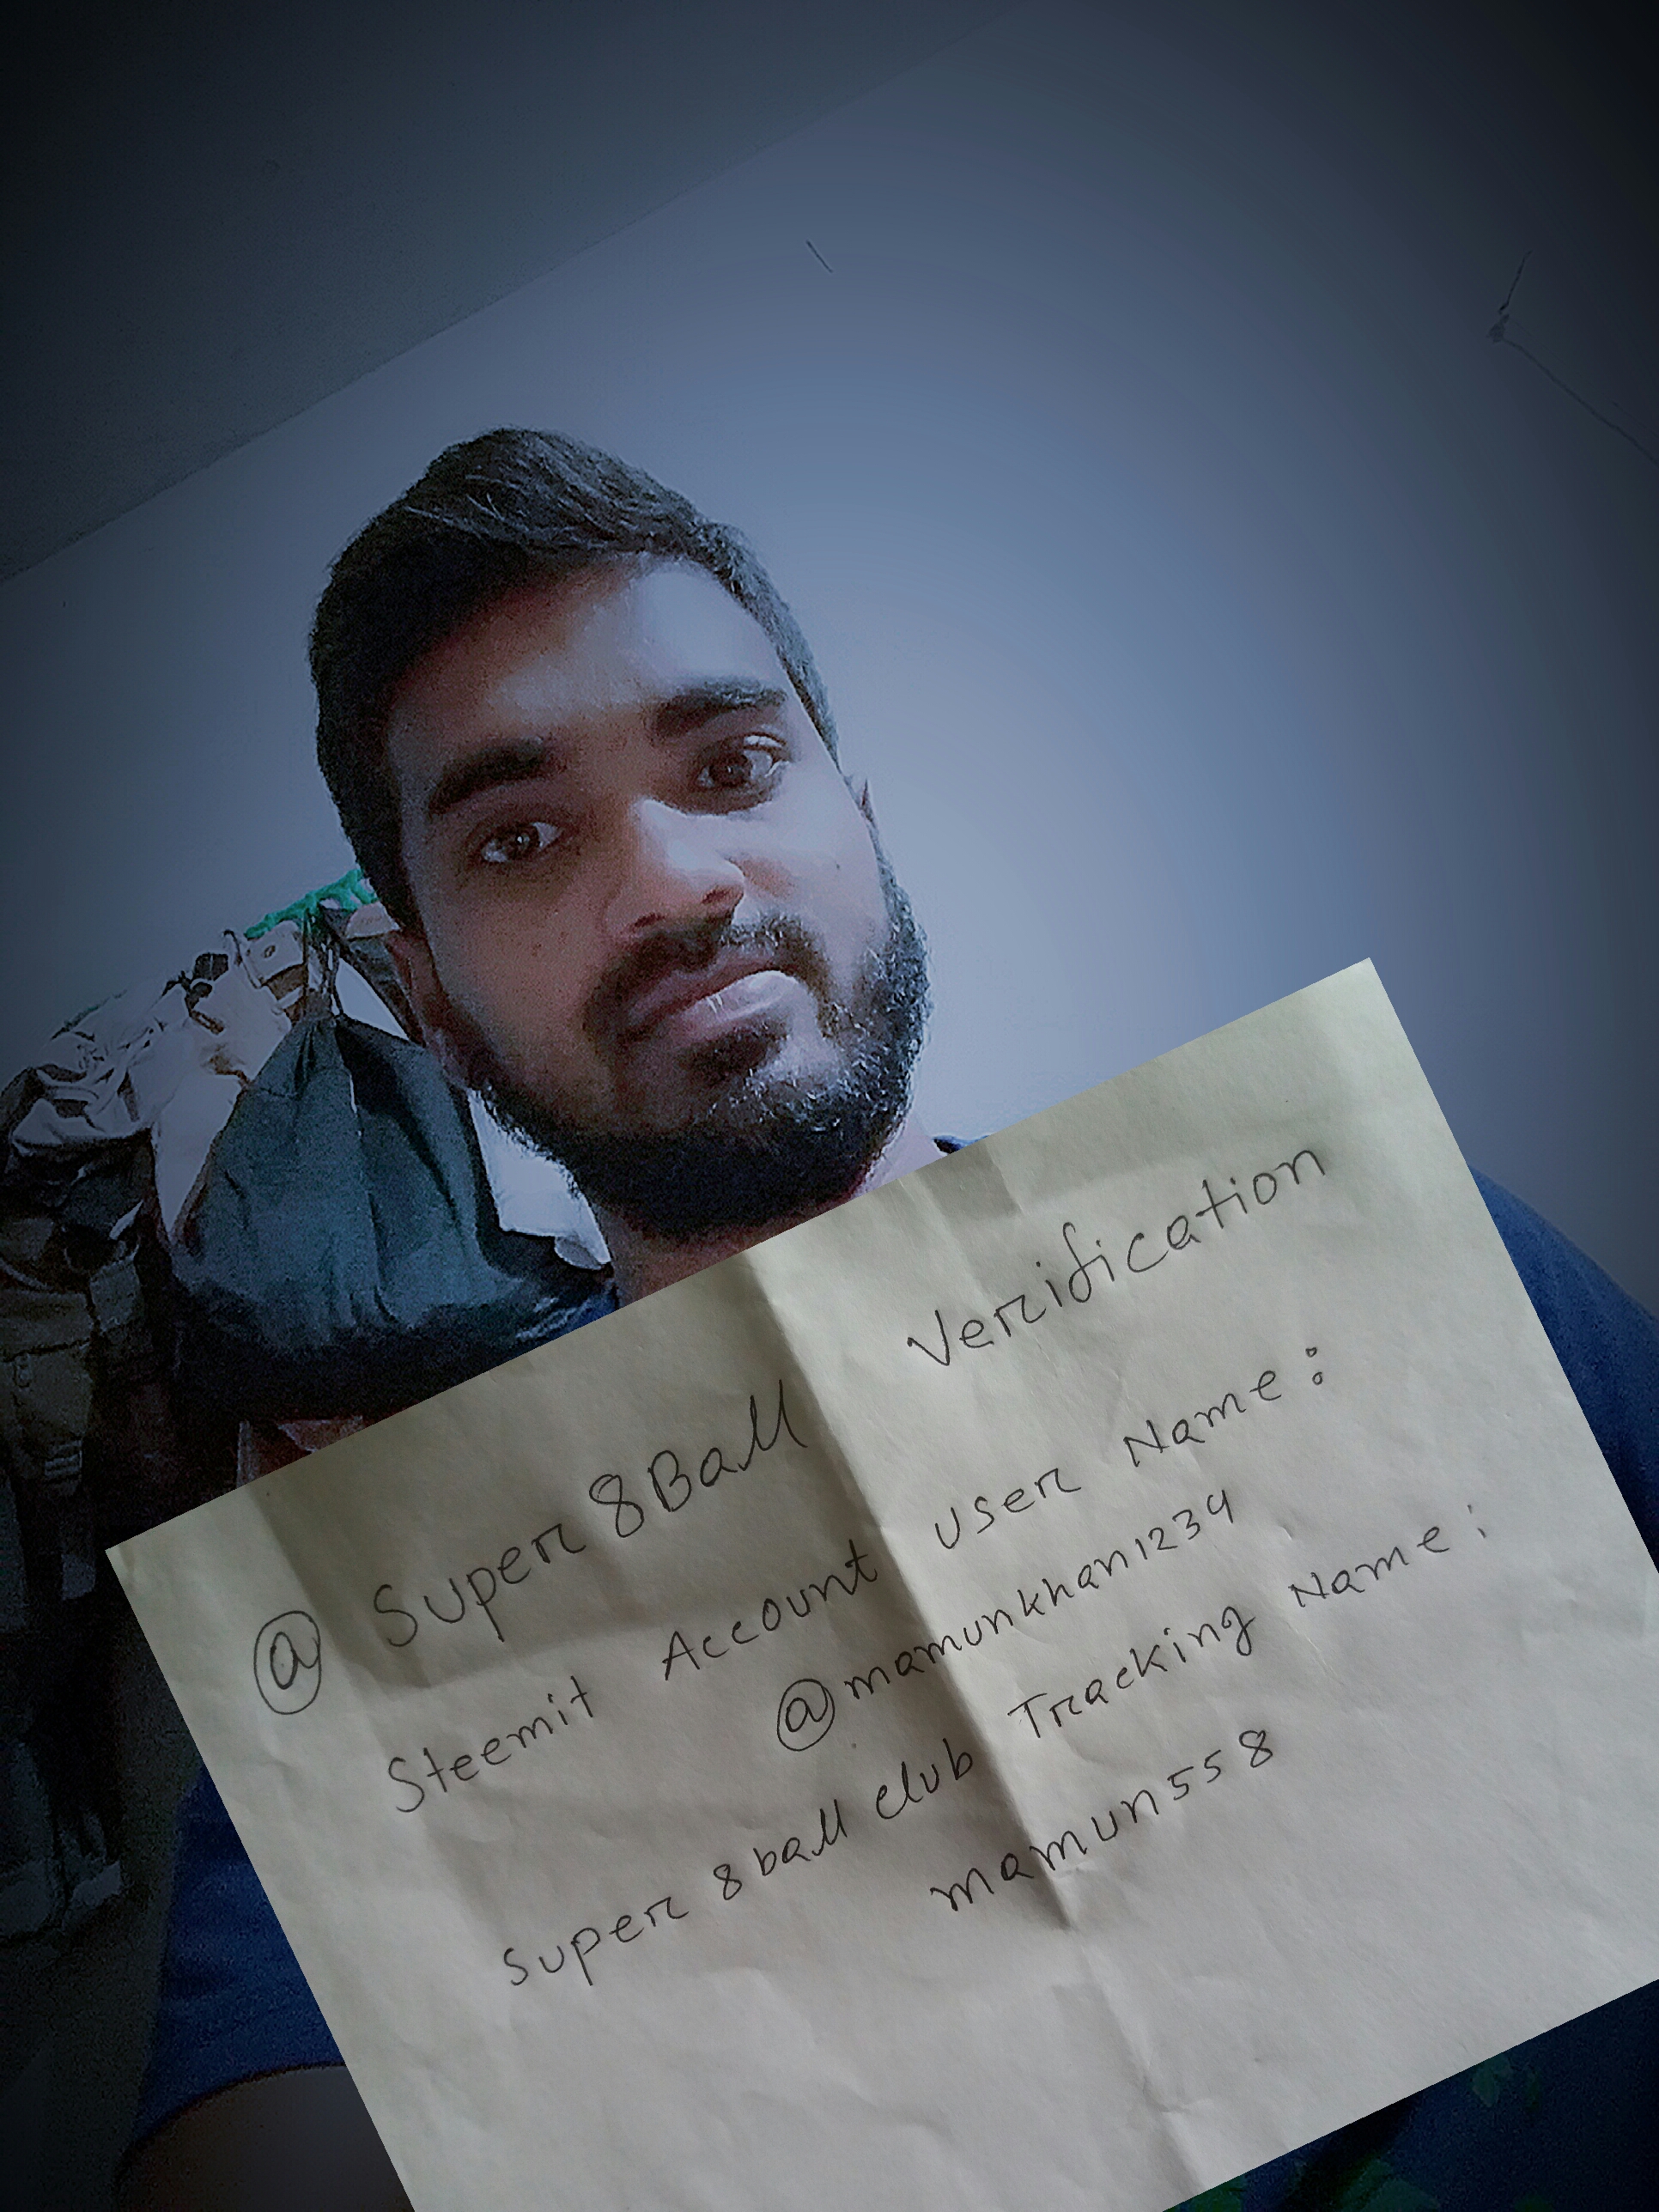 @ Super8Ball Verification
Steemit Account User Name:
@mamunkhan1234
Super 8ball club Tracking Name:
mamun558